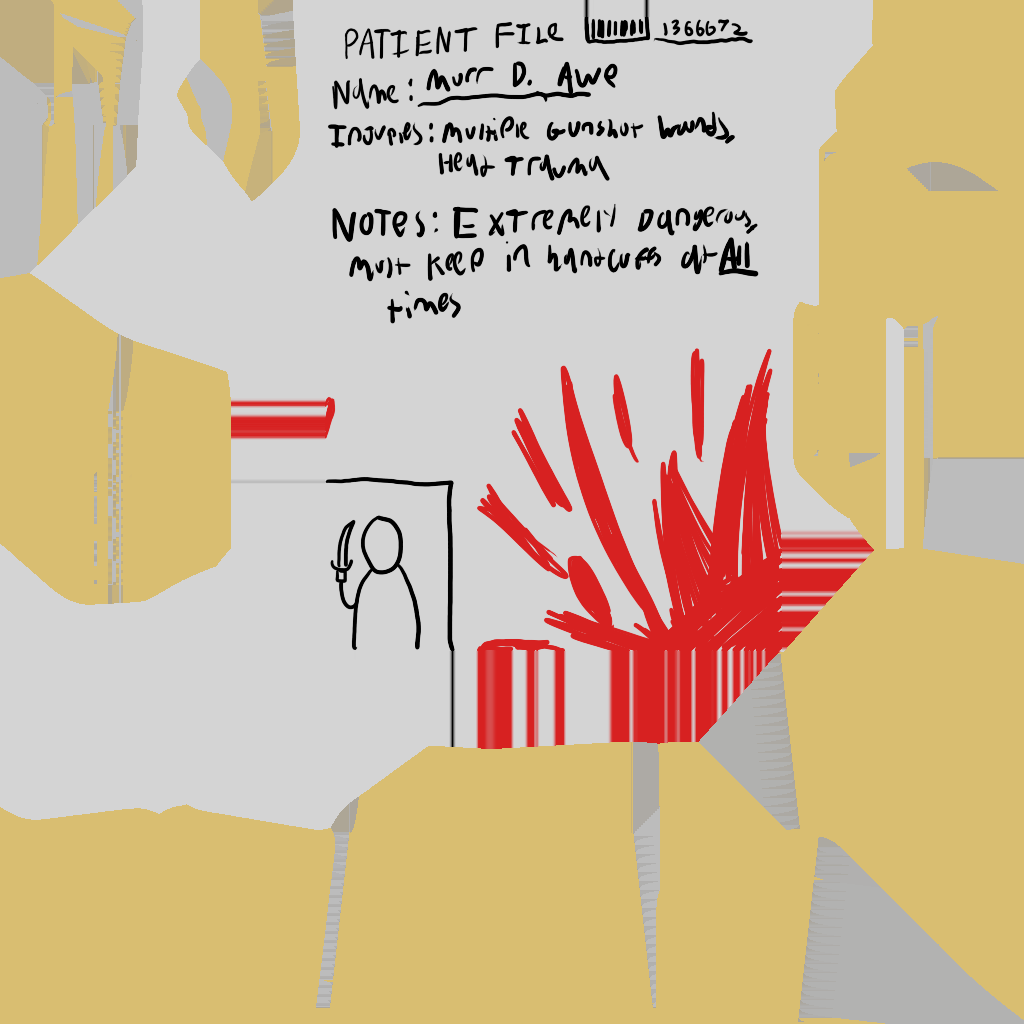 PATIENT FILE 1366672
Name: Murr D. Awe
Injuries: multiple Gunshot wounds,
Head Trauma
NOTES: Extremely Dangerous,
must keep in handcuffs at All
times